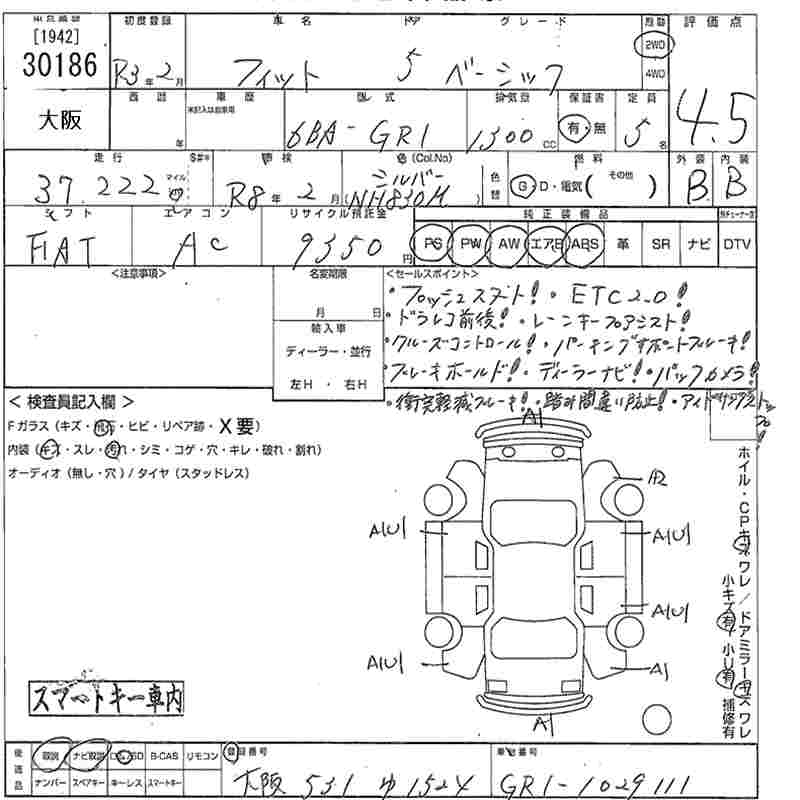 [1942]
30186
大阪
初度登録
R3年2月
車名
フィット
ドア
5
グレード
ベーシック
2WD
4WD
評価点
4.5
西暦
年
車歴
型式
6BA-GR1
排気量
1300cc
保証書
有・無
定員
5名
走行
37.222
マイル
km
車検
R8年2月
色(Col.No)
シルバー
(NH830M
色替
燃料
G・D・電気( その他 )
外装
B
内装
B
シフト
FIAT
エアコン
AC
リサイクル預託金
9350円
純正装備品
PS PW AW エアB ABS 革 SR ナビ DTV
<注意事項>
名変期限
月 日
輸入車
ディーラー・並行
左H・右H
<セールスポイント>
・プッシュスタート!・ETC2.0!
・ドラレコ前後!・レーンキープアシスト!
・クルーズコントロール!・パーキングサポートブレーキ!
・ブレーキホールド!・ディーラーナビ!・バックカメラ!
・衝突軽減ブレーキ!・踏み間違い防止!・アイドリングストップ!
<検査員記入欄>
Fガラス(キズ・飛石・ヒビ・リペア跡・X要)
内装(キズ・スレ・汚れ・シミ・コゲ・穴・キレ・破れ・割れ)
オーディオ(無し・穴)/タイヤ(スタッドレス)
A1
A2
A1U1
A1U1
A1U1
A1U1
A1
A1
ホイル・CPキズワレ/ドアミラーキズワレ
小キズ有 小U有 補修有
スマートキー車内
後送品
取説 ナビ取説 B-CAS リモコン
ナンバー スペアキー キーレス スマートキー
登録番号
大阪 531 ゆ 1524
車台番号
GR1-1029111